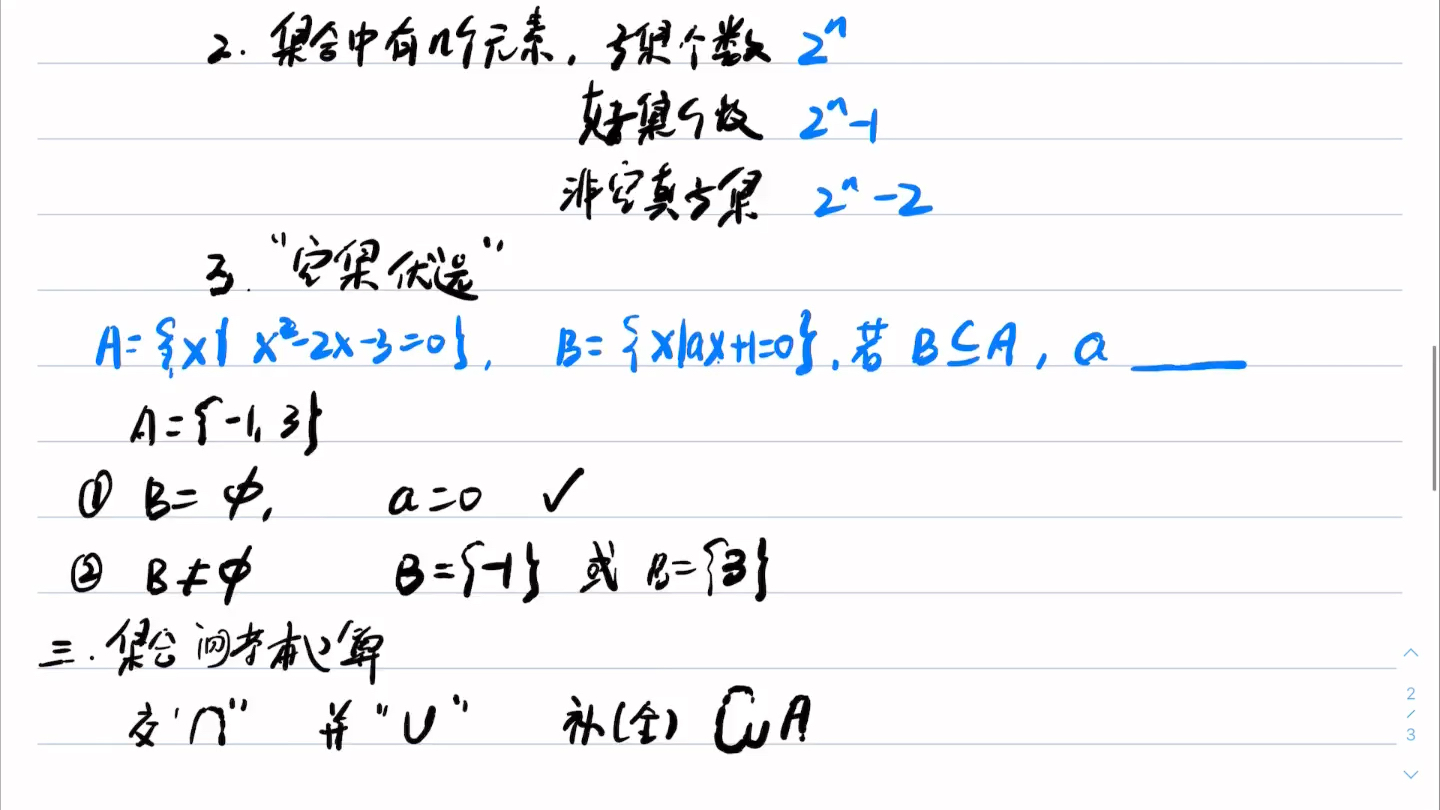 2. 集合中有n个元素, 子集个数 2ⁿ
真子集个数 2ⁿ-1
非空真子集 2ⁿ-2
3. “空集优选”
A={x| x²-2x-3=0}, B={x|ax+1=0}, 若 B⊆A, a ____
A={-1, 3}
① B=∅, a=0 ✓
② B≠∅ B={-1} 或 B={3}
三. 集合间基本运算
交“∩” 并“∪” 补(全) ∁ᵤA
2/3